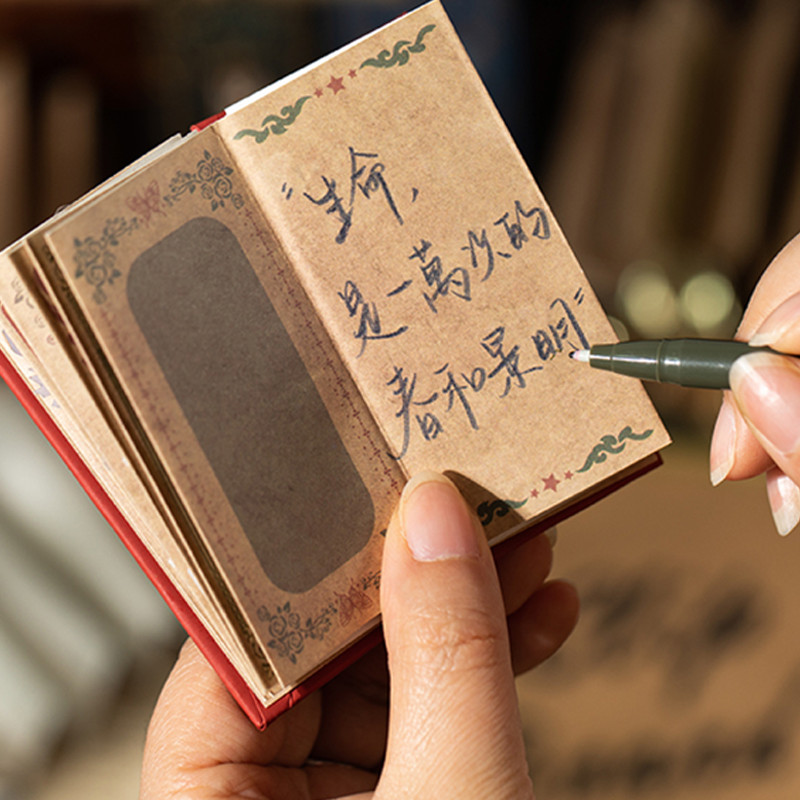 “生命,
是一萬次的
春和景明”